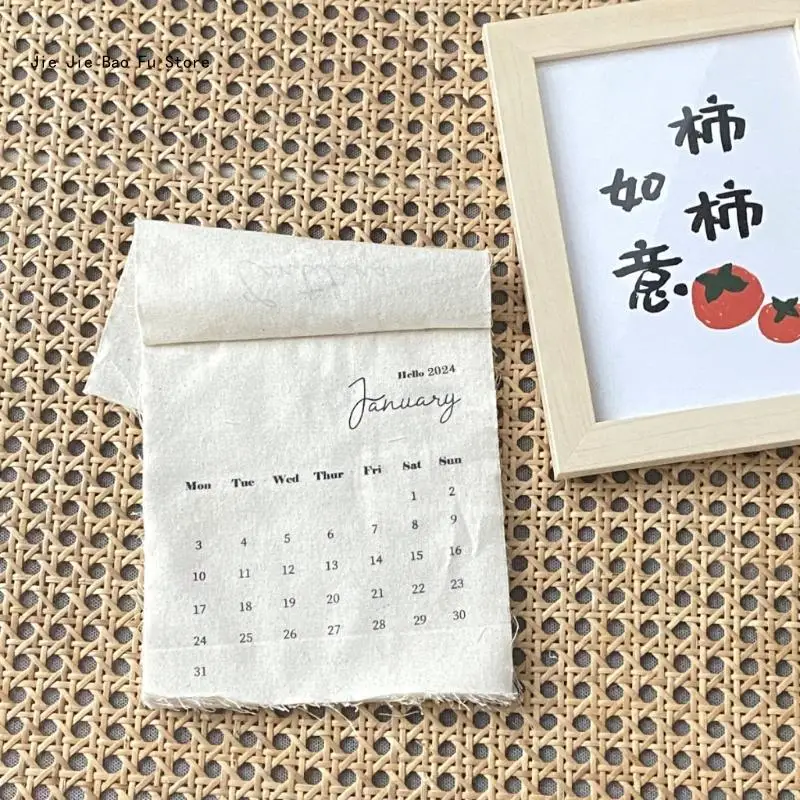 Jie Jie Bao Fu Store
Hello 2024
January
Mon Tue Wed Thur Fri Sat Sun
1 2
3 4 5 6 7 8 9
10 11 12 13 14 15 16
17 18 19 20 21 22 23
24 25 26 27 28 29 30
31
柿柿
如意